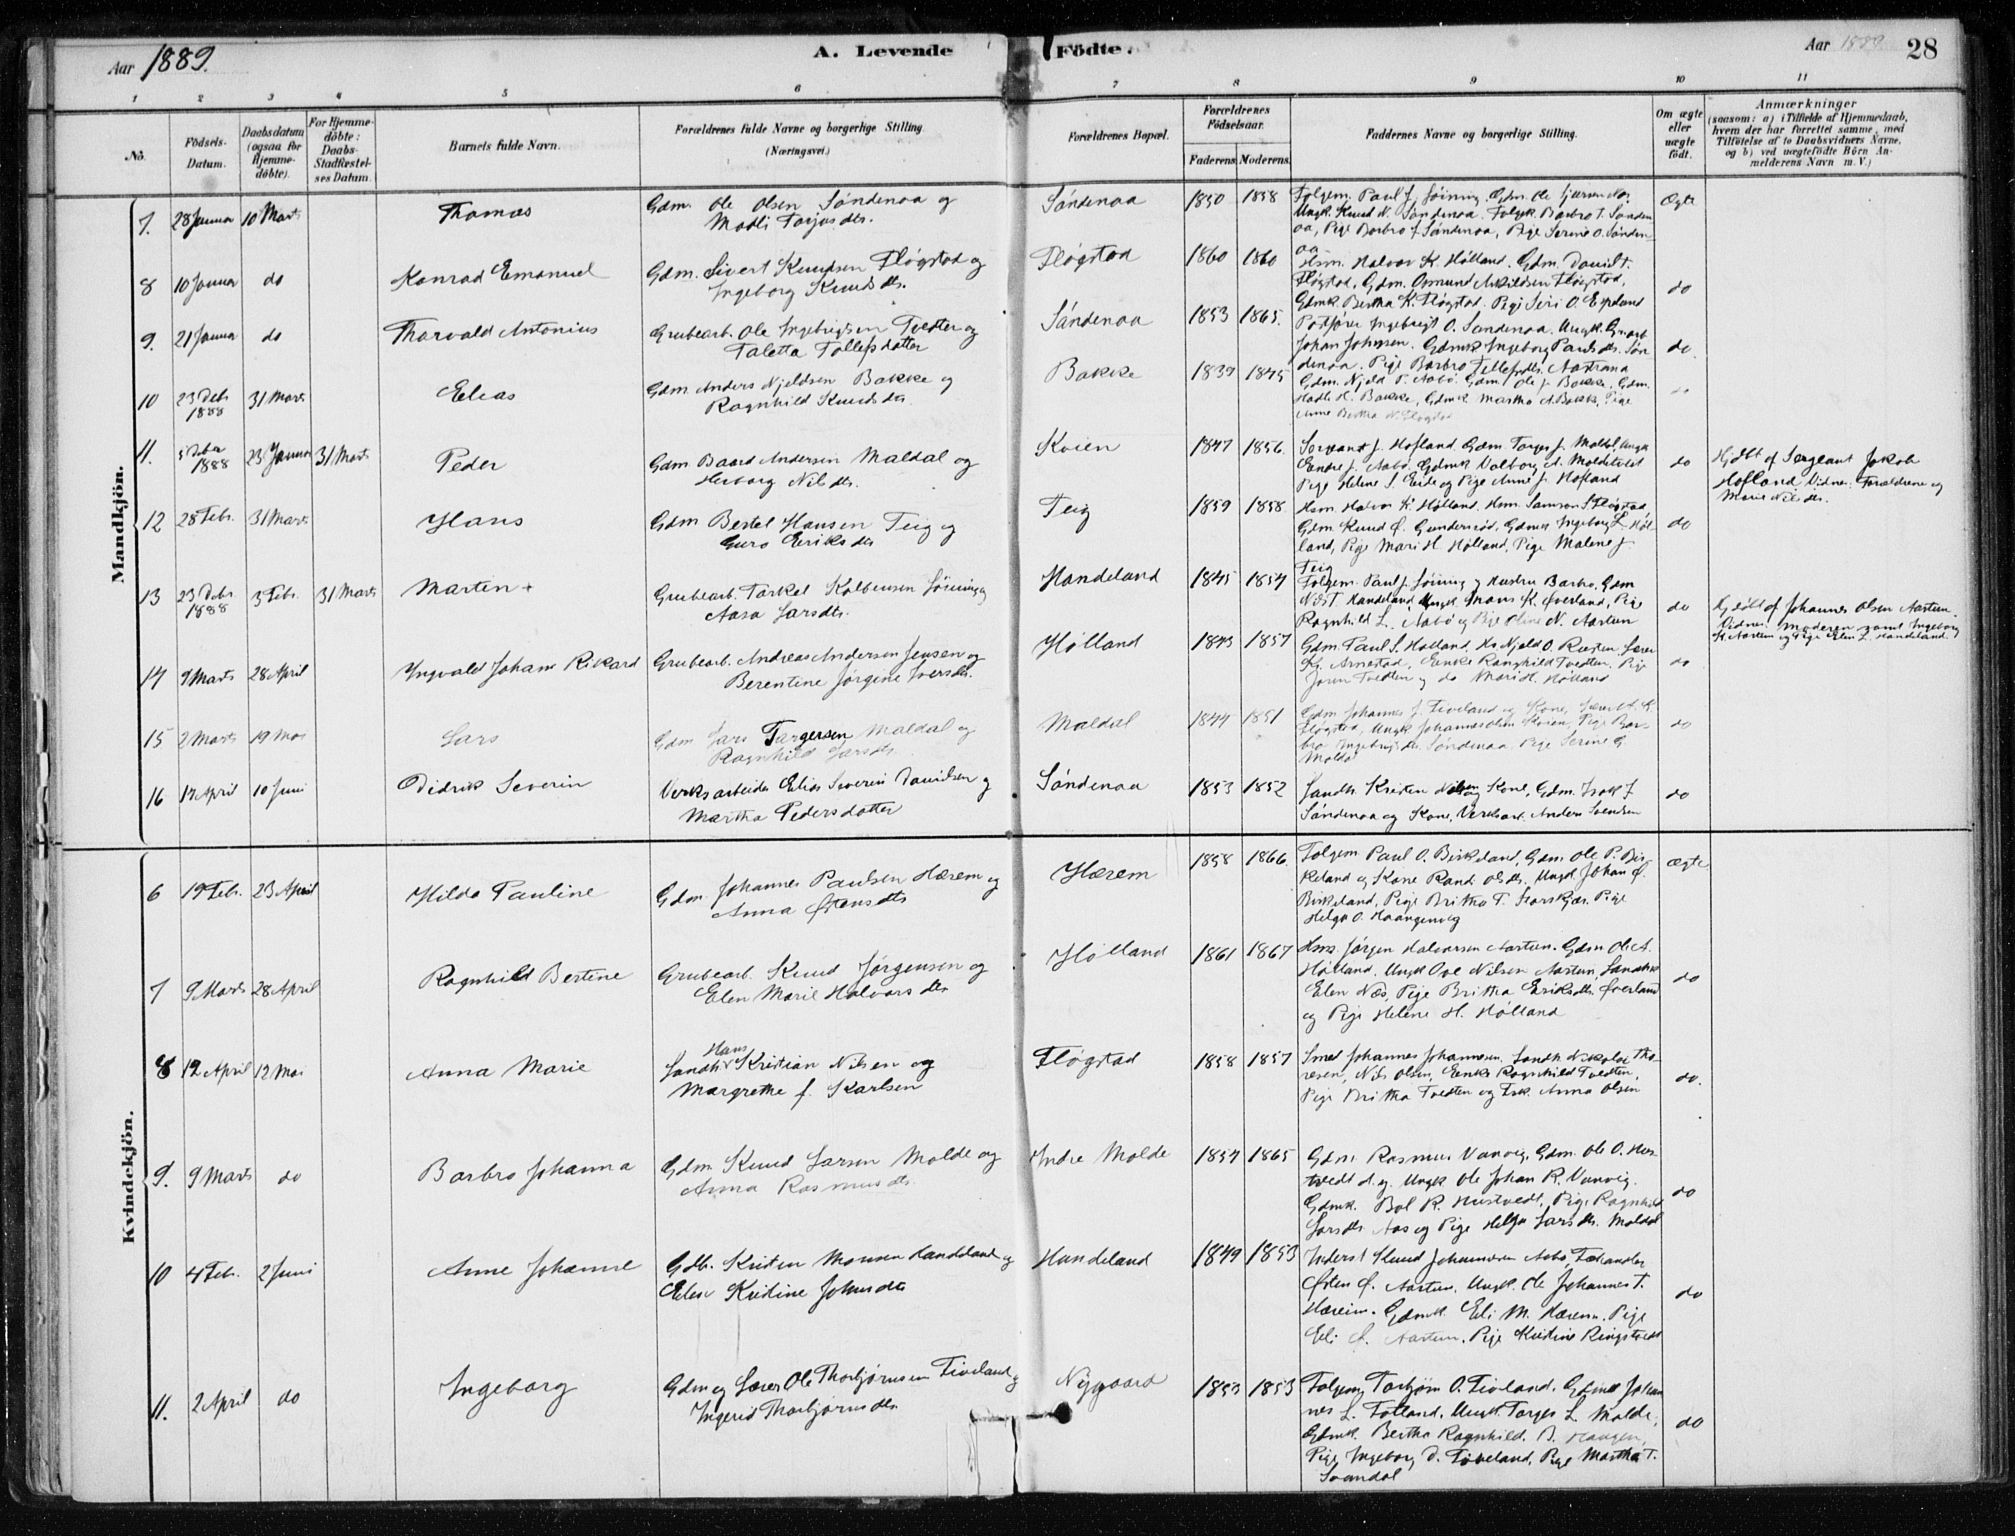 Aar 1889.
A. Levende
Födte.
Aar 1889
28
1 2 3 4 5 6 7 8 9 10 11
No.
Födsels-
Datum.
Daabsdatum
(ogsaa for
Hjemme-
döbte).
For Hjemme-
döbte:
Daabs-
Stadfæstel-
ses Datum.
Barnets fulde Navn.
Forældrenes fulde Navne og borgerlige Stilling
(Næringsvei.)
Forældrenes Bopæl.
Forældrenes
Födselsaar.
Faderens. Moderens.
Faddernes Navne og borgerlige Stilling.
Om ægte
eller
uægte
født.
Anmærkninger
(saasom: a) i Tilfælde af Hjemmedaab,
hvem der har forrettet samme, med
Tilföielse af to Daabsvidners Navne,
og b) ved uægtefödte Börn An-
melderens Navn m. V.)
Mandkjön.
7. 28 Januar 10 Marts Thomas Gdm. Ole Olsen Søndenaa og
Søndenaa 1850 1858 Ægte
Ungk. Knud N. Søndenaa
aa, Pige Barbro J. Søndenaa, Pige Serine O. Sønden-
aa
8 10 Januar do Konrad Emanuel Gdm. Sivert Knudsen Fløgstad og
Ingeborg Knudsdtr.
Fløgstad 1860 1860 Hsm. Halvor K. Hølland. Gdm. Daniel T.
Fløgstad, Gdm. Osmund Fløgstad, do
Gdmk. Bertha K. Fløgstad. Pige Siri O.
9. 21 Januar do Thorvald Antonius Grubearb. Ole Ingebrigtsen Tvedten og
Taletta Tollefsdatter
Søndenaa 1853 1865. Ingebrigt O. Søndenaa. Ungk.
Johan Johnsen. Gdmk Ingeborg Paulsdtr. Søn do.
denaa. Pige Barbro
10 23 Debr 1888 31 Marts Elias Gdm. Anders Njeldsen Bakke og
Ragnhild Knudsdtr
Bakke 1839 1845 Gdm. Njeld T. Aabø. Gdm. Ole J. Bakke, Gdm.
Bakke, Gdmk Martha A. Bakke, Pige do
11. Debr 1888 23 Januar 31 Marts Peder Gdm Baard Andersen Maldal og
Herborg Nilsdtr.
Kvien 1847 1856. Sergeant J. Hofland. Gdm. Torger J. Maldal, Ungk
Endre J. Aabø. Gdmk Valborg A. do
Pige Helene S. Eide og Pige Anne J. Hofland
Hjdbt af Sergeant Jakob
Hofland. Vidner: Forældrene og
Marie Nilsdtr.
12 28 Febr. 31 Marts Hans Gdm Bertel Hansen Teig og
Guro Eriksdtr
Teig 1859 1858 Hsm. Halvor K. Hølland. Hsm. Samson S Fløgstad,
Gdm. Knud Gdmk Ingeborg L. Høl- do
land, Pige Mari H. Hølland, Pige Malene J.
Teig
13 23 Debr 1888 3 Febr. 31 Marts Marten + Grubearb. Torkel Kolbensen og
Aasa Larsdtr.
Handeland 1845 1854 Folgem. Paul J. og Hustru Barbro, Gdm
Handeland, Ungk. Mons K. Øverland, Pige do
Ragnhild L. Aabø og Pige Oline N. Aartun
Hjdbt af Johannes Olsen Aartun.
Vidner: Moderen samt Ingeborg
K. Aartun og Pige Elen L. Handeland.
14 9 Marts 28 April Ingvald Johan Rikard Grubearb. Andreas Andersen Jensen og
Berentine Jørgine Iversdtr.
Hølland 1843 1857 Gdm. Paul S. Hølland,
Enke Ragnhild Tvedten, Pige do
Joren Tvedten og do Mari H. Hølland
15 2 Marts 19 Mai Lars Gdm Lars Torgersen Maldal og
Ragnhild Larsdtr.
Maldal 1844 1851 Gdm Johannes J. Tveland og Kone,
Fløgstad, Ungk Johannes Olsen Kvien, Pige Bar- do
bro Ingebrigtsdtr. Søndenaa. Pige Serine G.
Maldal
16 17 April 10 Juni Didrik Severin Verksarbeider Elias Severin Danielsen og
Martha Pedersdatter
Søndenaa 1853 1852 Sandh. Kristen Nilsen og Kone, Gdm. Isak J. do
Søndenaa og Kone, Verksarb. Anders Svendsen
Kvindekjön.
6 19 Febr. 23 April Hilda Pauline Gdm. Johannes Paulsen Hærem og
Anna Østensdtr
Hærem 1858 1866. Folgem Paul O. Birkeland, Gdm Ole P. Bir- ægte
keland og Kone Randi Olsdtr. Ungk Johan Ø.
Birkeland, Pige Britha T. Pige
Helga O.
7 9 Marts 28 April Ragnhild Bertine Grubearb. Knud Jørgensen og
Elen Marie Halvorsdtr
Hølland 1861 1867 Hsm. Jørgen Halvorsen Aartun. Gdm Ole A.
Hølland. Ungk Ove Nilsen Aartun, do
Elen Næs, Pige Britha Eriksdtr. Øverland
og Pige Helene H. Hølland
8 12 April 12 Mai Anna Marie Sandh. Hans Kristian Nilsen og
Margrethe f. Karlsen
Fløgstad 1858 1857 Smed Johannes Johannesen. Sandh. Nikolai Tho-
resen, Nils Olsen, Enke Ragnhild Tvedten, do.
Pige Britha Tvedten og Frk. Anna Olsen
9. 9 Marts do Barbro Johanna Gdm. Knud Larsen Molde og
Anna Rasmusdtr.
Indre Molde 1854 1865 Gdm. Rasmus Vanvig, Gdm. Ole O. Hus-
tvedt d.y. Ungk Ole Johan R. Vanvig. do
Gdmk. Bol R. Hustvedt, Pige Ragnhild
Larsdtr Aas og Pige Helga Larsdtr. Maldal
10 4 Febr. 2 Juni Anne Johanne Gdb. Kristen Monsen Handeland og
Elen Kristine Johnsdtr
Handeland 1849 1853 Inderst Knud Johannesen Aabø,
Østen Ø. Aartun, Ungk. Ole Johannes T. do
Hæreim. Gdmk. Eli M. Hærem. Pige
Eli Ø. Aartun. Pige Kristine Ringstvedt
11. 2 April do Ingeborg Gdm og Lærer Ole Thorbjørnsen Tveland og
Ingerid Thorbjørnsdtr.
Nygaard 1853 1853 Folgem Torbjørn O. Tveland. Gdm Johan
nes L. Totland, Ungk. Torger L. Molde, do
Gdmk. Bertha Ragnhild. B. Haugen,
Pige Ingeborg D. Tøveland, Pige Martha T.
Svandal